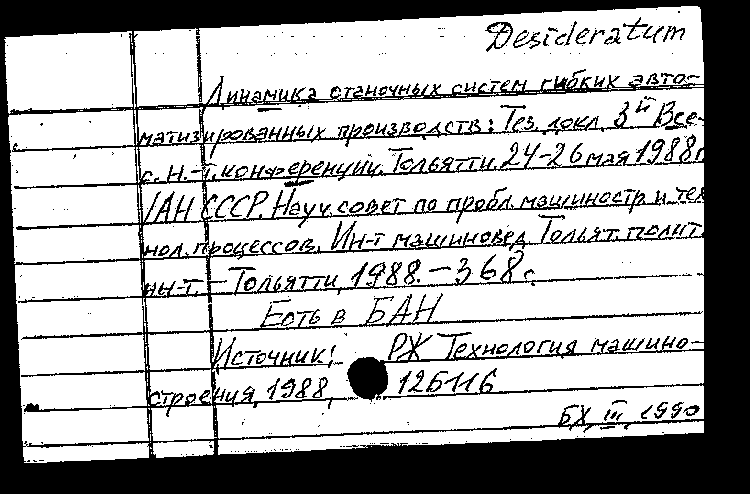 Desideratum
Динамика станочных систем гибких авто-
матизированных производств: Тез. докл. 3й Все-
с. н.-т. конференции. Тольятти. 24-26 мая 1988г
/АН СССР. Науч. совет по пробл. машиностр и тех
нол. процессов. Ин-т машиновед. Тольят. полит.
ин-т. - Тольятти, 1988. - 368 с.
Есть в БАН
Источник: РЖ Технология машино-
строения, 1988,
БХ, III, 1990